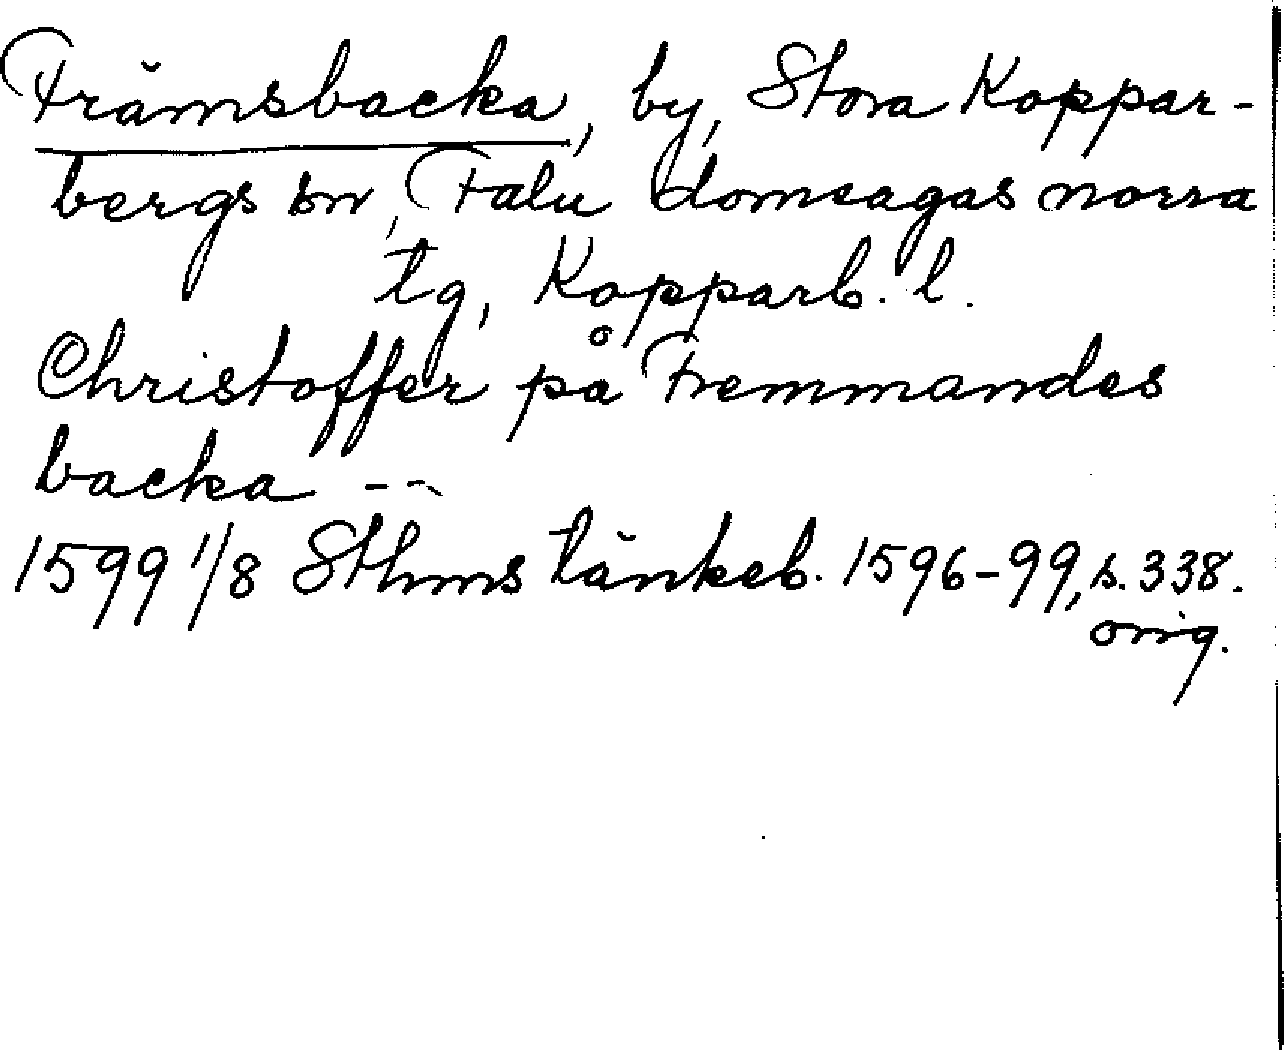 Främsbacka, by, Stora Koppar-
bergs sn, Falu domsagas norra
tg, Kopparb. l.
Christoffer på Fremmandes
backa --
1599 1/8 Sthms tänkeb. 1596-99, s. 338.
orig.